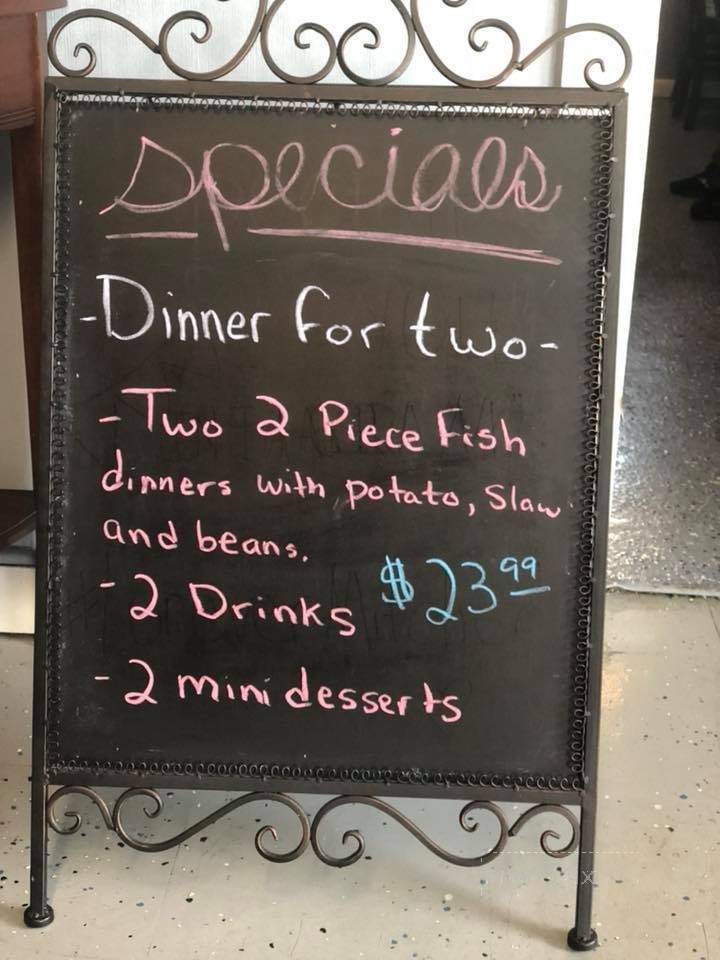 Specials
-Dinner for two-
-Two 2 Piece Fish
dinners with potato, Slaw
and beans.
-2 Drinks $23.99
-2 mini desserts